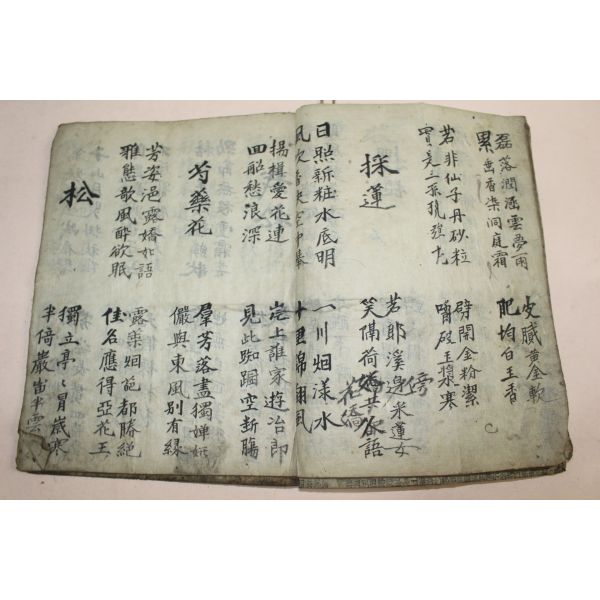 磊落潤涵雲夢雨
皮膩黃金軟
累垂香染洞庭霜
肥均白玉香
若非仙子丹砂粒
劈開金粉潔
實是三
嚼破玉漿寒
採蓮
若耶溪邊采蓮女
傍
笑隔荷共人語
花
日照新粧水底明
一川烟漾水
風吹香袂空中擧
十里錦翻風
揚楫愛花連
岸上誰家遊冶郎
回船愁浪深
見此踟躕空斷腸
芍藥花
羣芳落盡獨嬋娟
儼與東風別有緣
芳姿浥露嬌如語
露蘂烟葩都勝絕
雅態欹風醉欲眠
佳名應得亞花王
松
獨立亭〻冒歲寒
半倚巖半雲